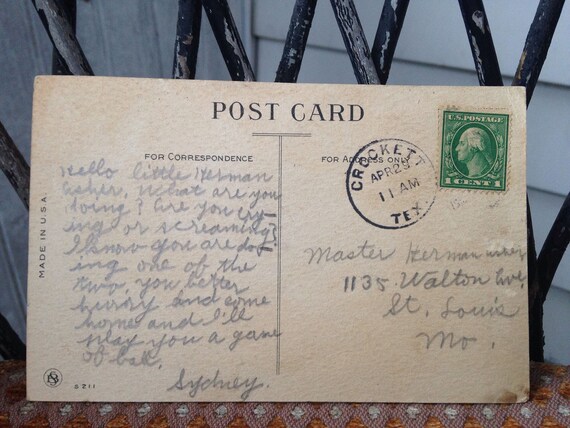 POST CARD
FOR CORRESPONDENCE
FOR ADDRESS ONLY
MADE IN U.S.A.
Hello little Herman
Usher, What are you
doing? Are you cry-
ing or screaming?
I know you are do-
ing one of the
two, you better
hurry and come
home and I'll
play you a game
of ball.
Sydney.
S 211
CROCKETT
APR 29
11 AM
TEX.
U.S. POSTAGE
1 CENT 1
Master Herman Usher
1135 Walton Ave.
St. Louis
Mo.